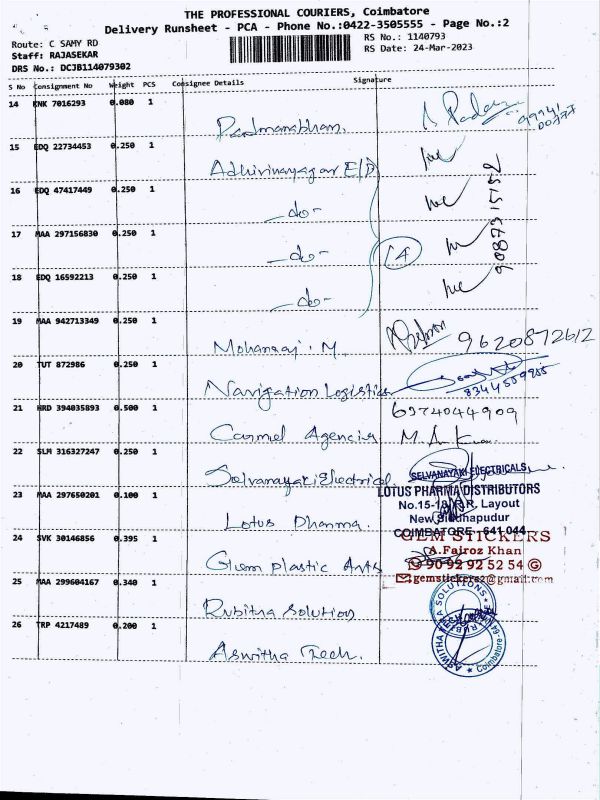 THE PROFESSIONAL COURIERS, Coimbatore
Delivery Runsheet - PCA - Phone No.:0422-3505555 - Page No.:2
Route: C SAMY RD
RS No.: 1140793
Staff: RAJASEKAR
RS Date: 24-Mar-2023
DRS No.: DCJB114079302
S No Consignment No Weight PCS Consignee Details Signature
14 KNK 7016293 0.080 1
Padmanabham.
15 EDQ 22734453 0.250 1
Adhivinayagar E/D
16 EDQ 47417449 0.250 1
-do-
17 MAA 297156830 0.250 1
-do- 14
18 EDQ 16592213 0.250 1
-do-
19 MAA 942713349 0.250 1
Mohanraj. M 9620872612
20 TUT 872986 0.250 1
Navigation Logistics
21 HRD 394035893 0.500 1
6374044909
Carmel Agencies
22 SLM 316327247 0.250 1
Selvanayaki Electrical.
SELVANAYAKI ELECTRICALS
23 MAA 297650201 0.100 1
LOTUS PHARMA DISTRIBUTORS
No.15-18, R. Layout
New Siddhapudur
Lotus Pharma.
COIMBATORE - 641 044
24 SVK 30146856 0.395 1
GEM STICKERS
A.Fairoz Khan
Gem plastic Arts
90 92 92 52 54
gemstickers2@gmail.com
25 MAA 299604167 0.340 1
Rubitha Solution
RUBITHA SOLUTIONS
26 TRP 4217489 0.200 1
Aswitha Tech.
ASWITHA
Coimbatore